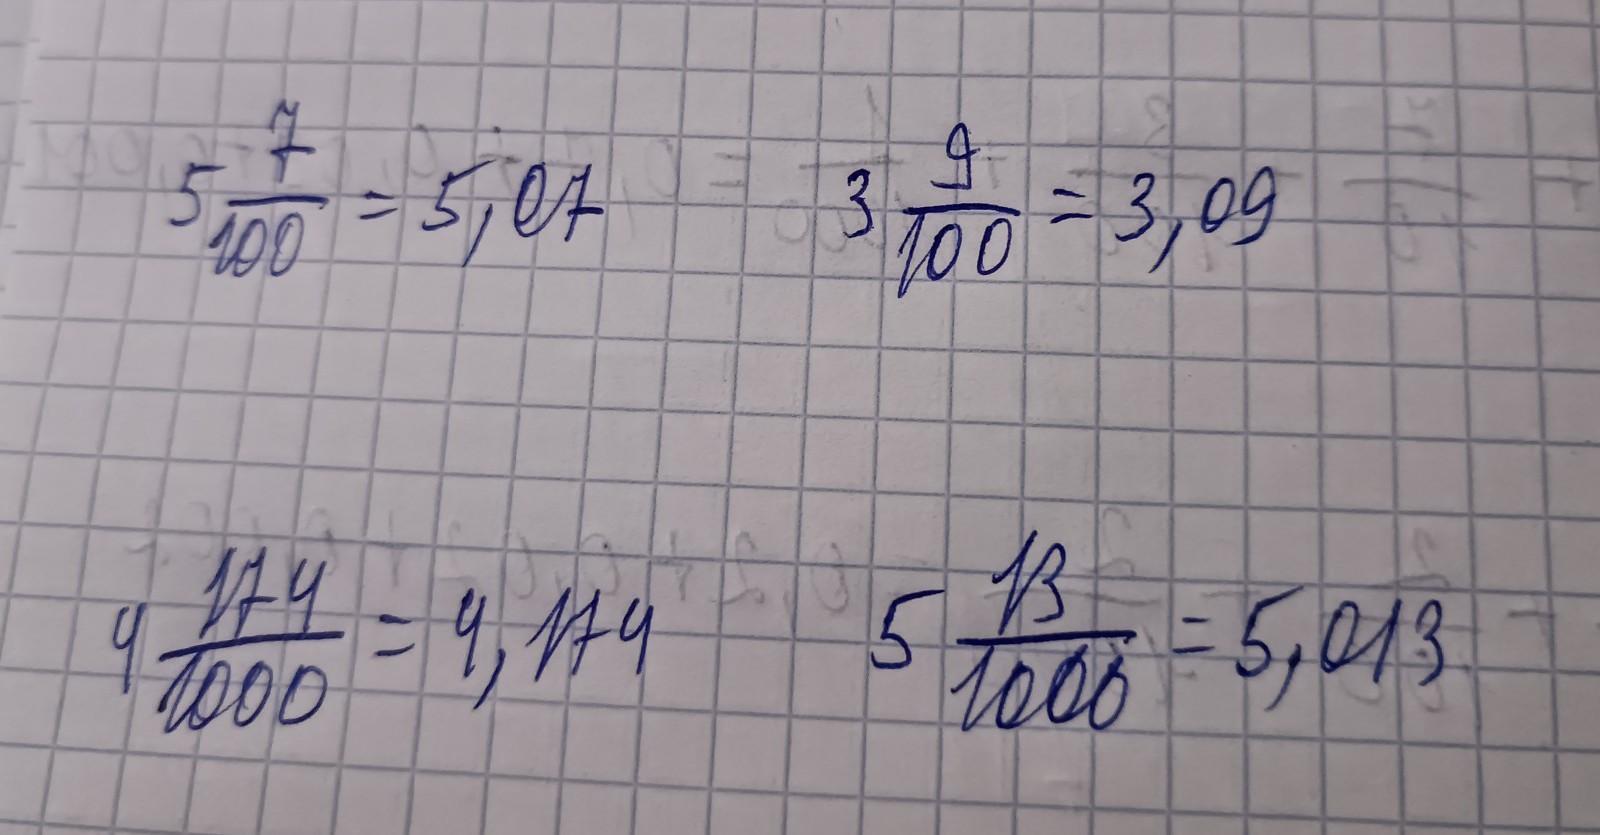 5 7/100 = 5,07    3 9/100 = 3,09
4 174/1000 = 4,174    5 13/1000 = 5,013